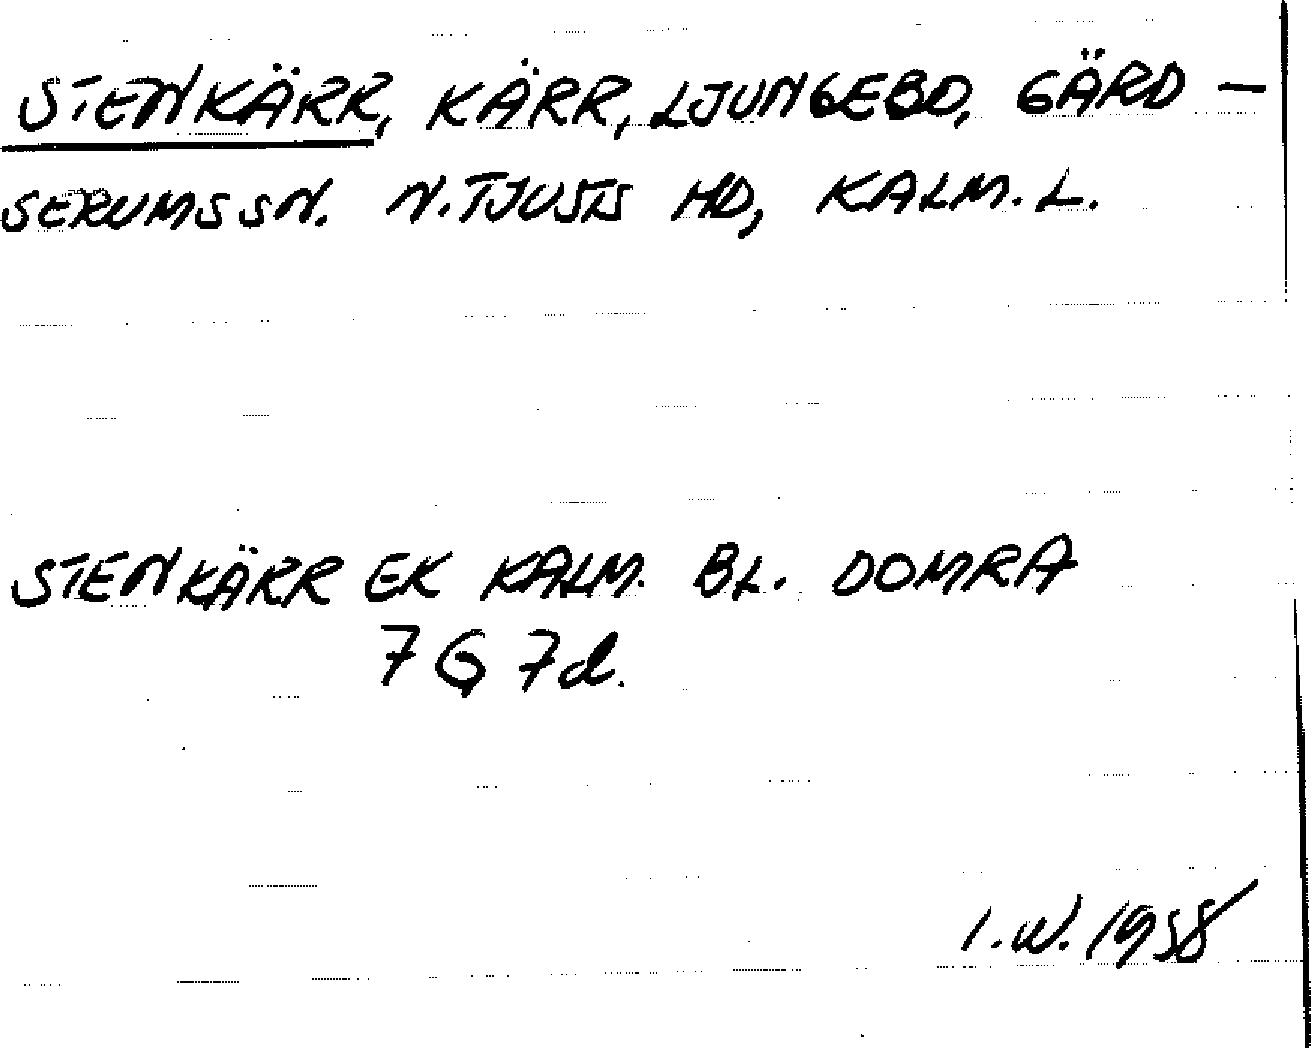 STENKÄRR, KÄRR, LJUNGEBO, GÄRD-
SERUMS SN. N. TJUSTS HD, KALM. L.
STENKÄRR EK KALM. BL. DOMRA
7G 7d.
I.W. 1958